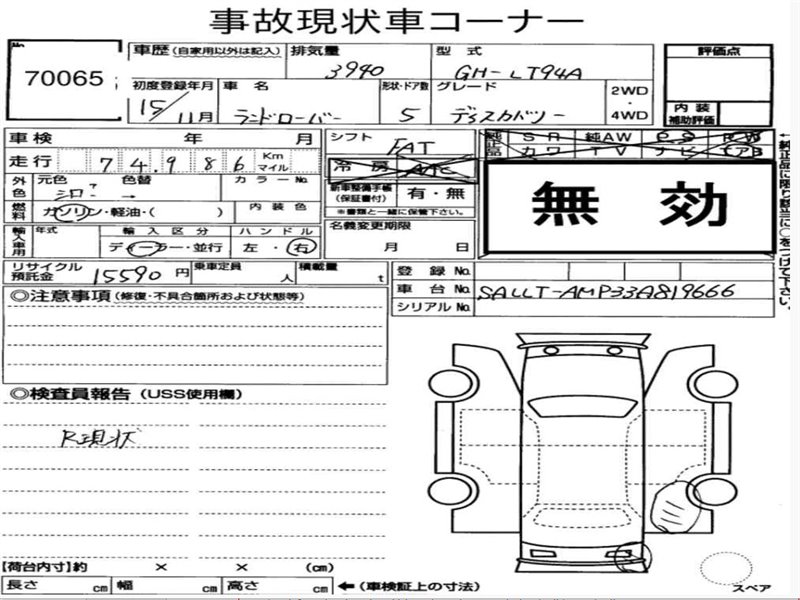 事故現状車コーナー
No. 70065
車歴 (自家用以外は記入) 排気量 3940 型式 GH-LT94A
評価点
初度登録年月 15/11月 車名 ランドローバー 形状・ドア数 5 グレード ディスカバリー 2WD・4WD
内装補助評価
車検 年 月 シフト FAT
純正品 SR 純AW PS PW
カワ TV ナビ エアB
走行 74,986 Km マイル 冷房 AAC
外色 元色 シロ 色替 → カラーNo.
新車整備手帳(保証書付) 有・無
※書類と一緒に保管下さい。
無効
燃料 ガソリン・軽油・( ) 内装色
輸入車用 年式 輸入区分 ディーラー・並行 ハンドル 左・右
名義変更期限 月 日
←純正品に限り該当に○をつけて下さい。
リサイクル預託金 15590円 乗車定員 人 積載量 t
登録No.
車台No. SALLT-AMP33A819666
シリアルNo.
◎注意事項 (修復・不具合箇所および状態等)
◎検査員報告 (USS使用欄)
R現状
【荷台内寸】約 × × (cm)
長さ cm 幅 cm 高さ cm ←(車検証上の寸法)
スペア